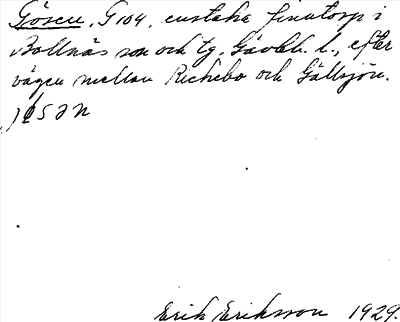 Gösen, G 104, enstaka finntorp i
Bollnäs sn och tg, Gävleb. l., efter
vägen mellan Richebo och Gällsjön.
Erik Eriksson 1929.